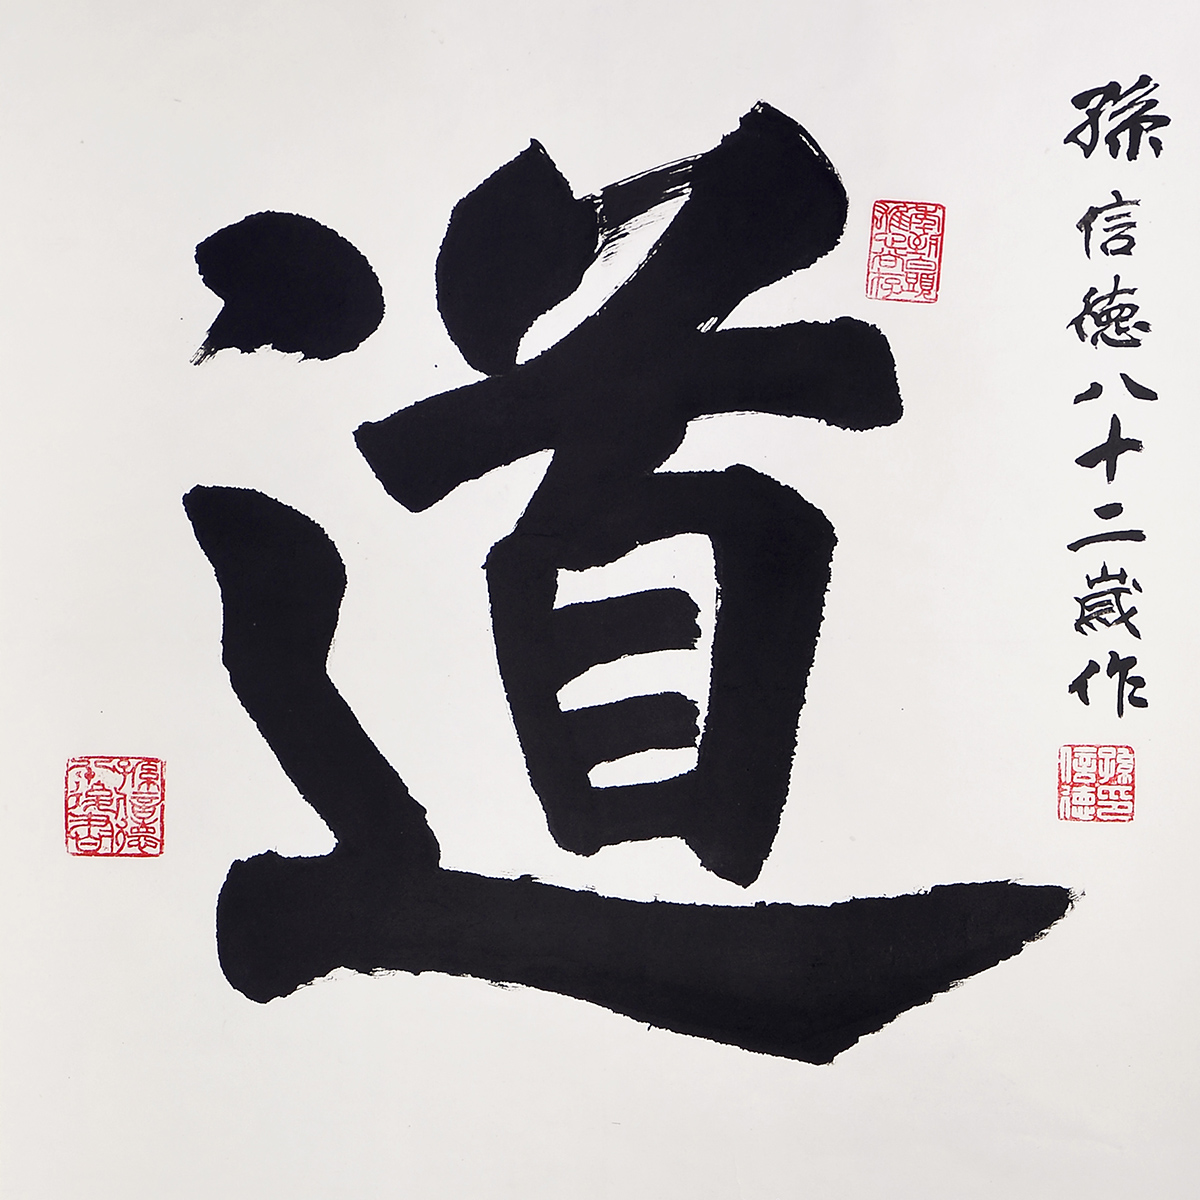 道
孫信德八十二歲作
孫信德印